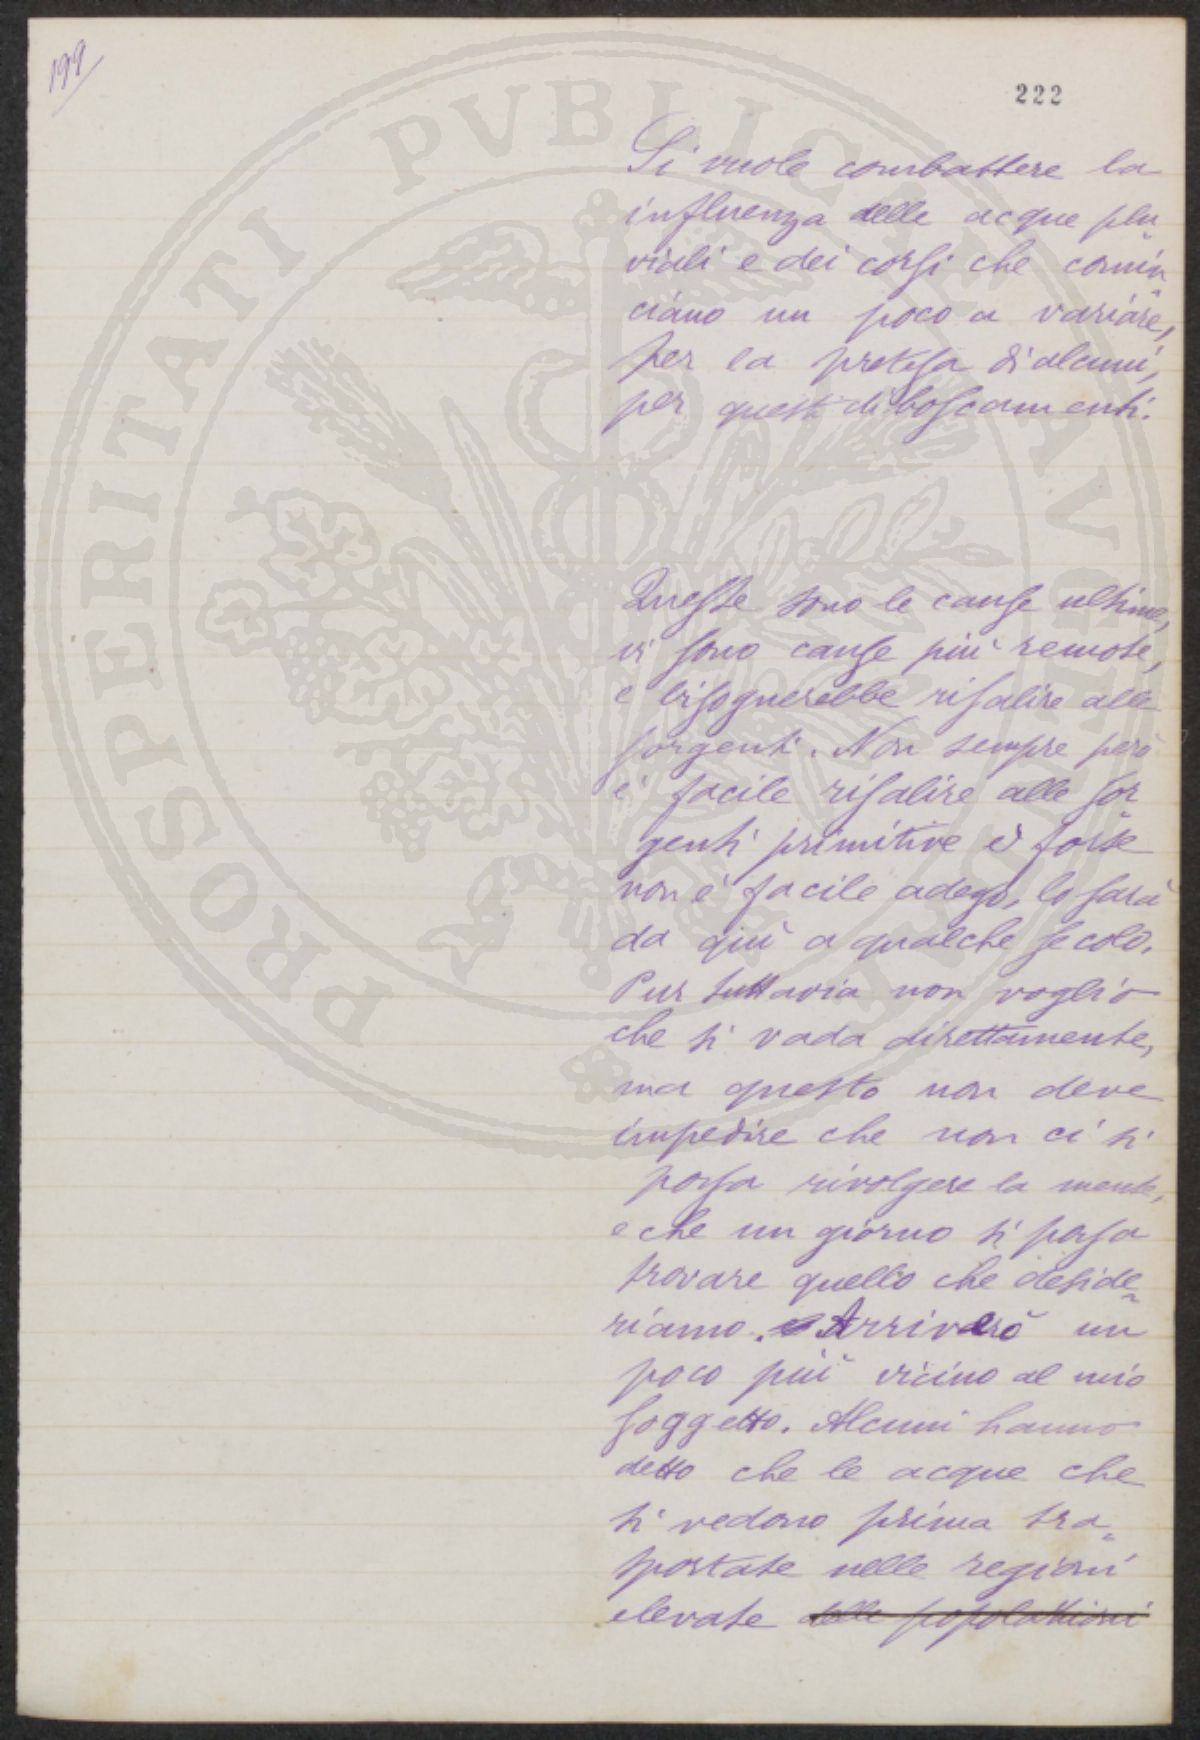 199
222
Si vuole combattere la
influenza delle acque plu=
viali e dei corsi che comin=
ciano un poco a variare,
per la pretesa di alcuni,
per questi diboscamenti.
Queste sono le cause ultime,
vi sono cause più remote,
e bisognerebbe risalire alle
sorgenti. Non sempre però
è facile risalire alle sor=
genti primitive e forse
non è facile adesso, lo sarà
da qui a qualche secolo.
Pur tuttavia non voglio
che si vada direttamente,
ma questo non deve
impedire che non ci si
possa rivolgere la mente,
e che un giorno si possa
trovare quello che deside=
riamo. Arriverò un
poco più vicino al mio
soggetto. Alcuni hanno
detto che le acque che
si vedono prima tra=
sportate nelle regioni
elevate delle popolazioni
PROSPERITATI PVBLICAE AVGENDAE